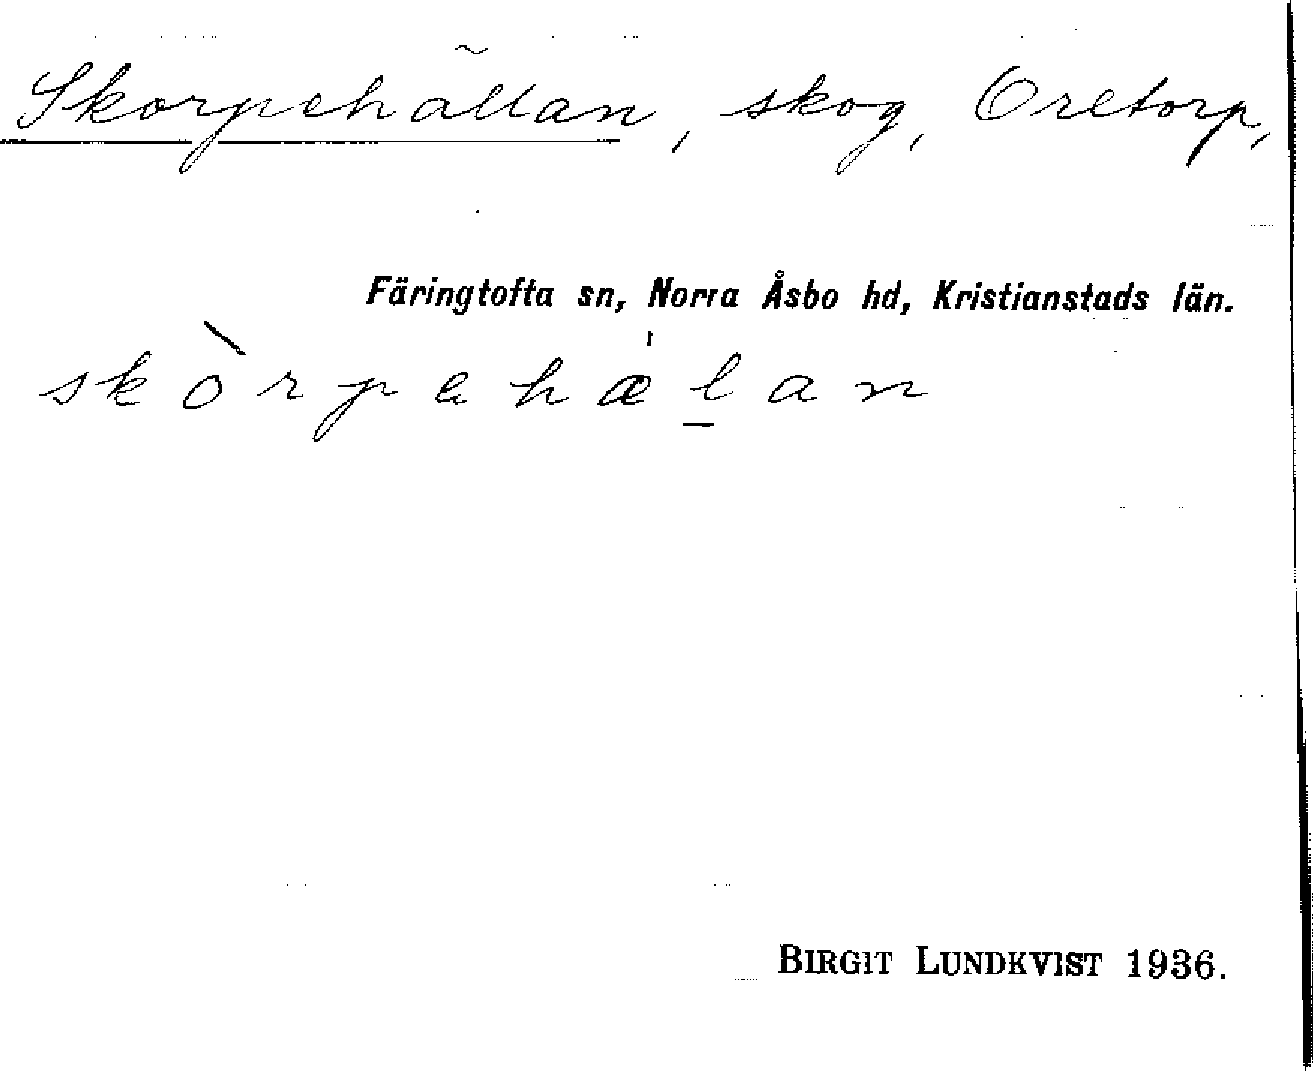 Skorpehällan, skog, Oretorp,
Färingtofta sn, Norra Åsbo hd, Kristianstads län.
skòrpehæ̍l̠an
BIRGIT LUNDKVIST 1936.